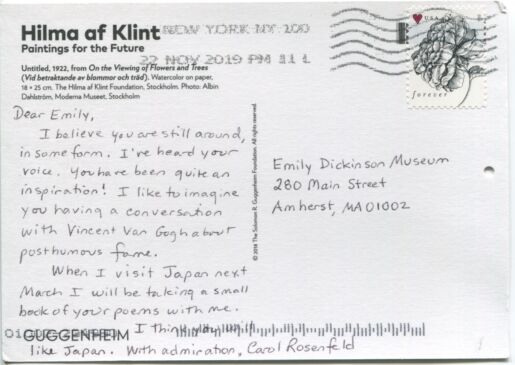 Hilma af Klint
Paintings for the Future
Untitled, 1922, from On the Viewing of Flowers and Trees
(Vid betraktande av blommor och träd). Watercolor on paper,
18 × 25 cm. The Hilma af Klint Foundation, Stockholm. Photo: Albin
Dahlström, Moderna Museet, Stockholm
NEW YORK NY 100
22 NOV 2019 PM 11 L
USA
forever
Dear Emily,
I believe you are still around,
in some form. I've heard your
voice. You have been quite an
inspiration! I like to imagine
you having a conversation
with Vincent Van Gogh about
posthumous fame.
When I visit Japan next
March I will be taking a small
book of your poems with me.
I think you will
like Japan. With admiration, Carol Rosenfeld
GUGGENHEIM
© 2018 The Solomon R. Guggenheim Foundation. All rights reserved.
Emily Dickinson Museum
280 Main Street
Amherst, MA 01002